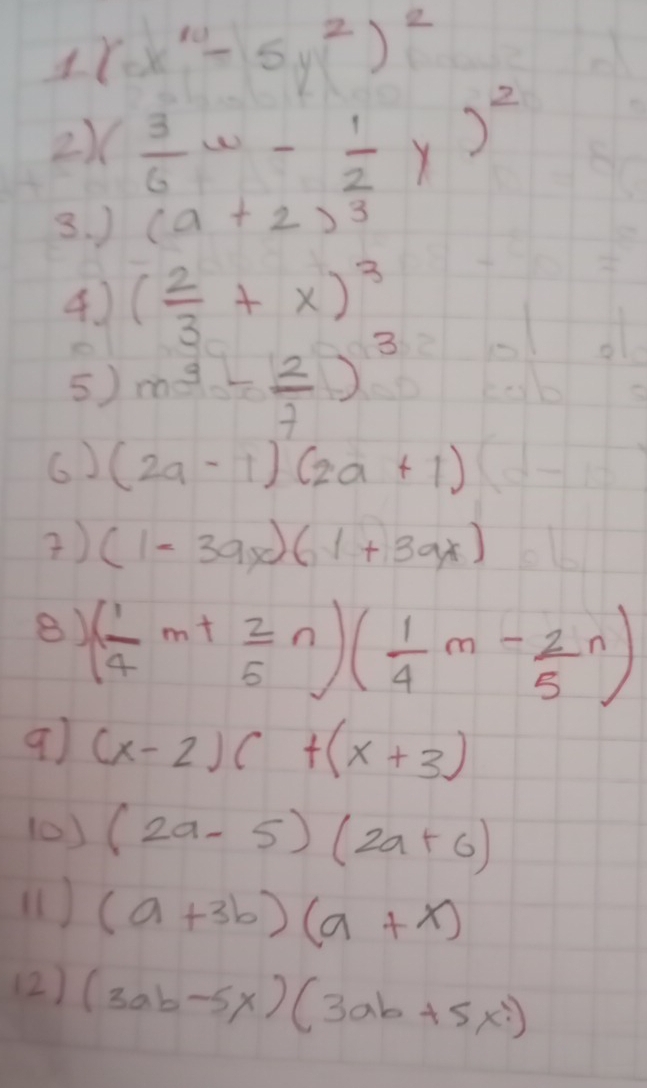 1) (x¹⁰ - 5y²)²
2) (3/6 w - 1/2 y)²
3.) (a + 2)³
4) (2/3 + x)³
5) m⁹ - 2/7)³
6) (2a - 1) (2a + 1)
7) (1 - 3ax) (1 + 3ax)
8) (1/4 m + 2/5 n) (1/4 m - 2/5 n)
9) (x - 2) ( + (x + 3)
10) (2a - 5) (2a + 6)
11) (a + 3b) (a + x)
12) (3ab - 5x) (3ab + 5x)